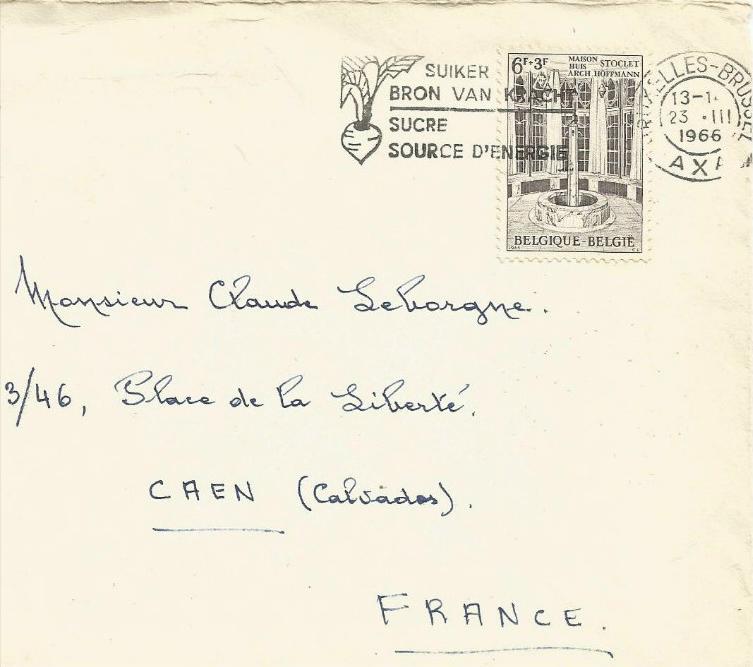 SUIKER
BRON VAN KRACHT
SUCRE
SOURCE D'ENERGIE
6F+3F
MAISON HUIS STOCLET
ARCH. HOFFMANN
BELGIQUE-BELGIË
BRUXELLES-BRUSSEL
13-1
23 • III
1966
Monsieur Claude Leborgne.
3/46, Place de la Liberté.
CAEN (Calvados).
FRANCE.